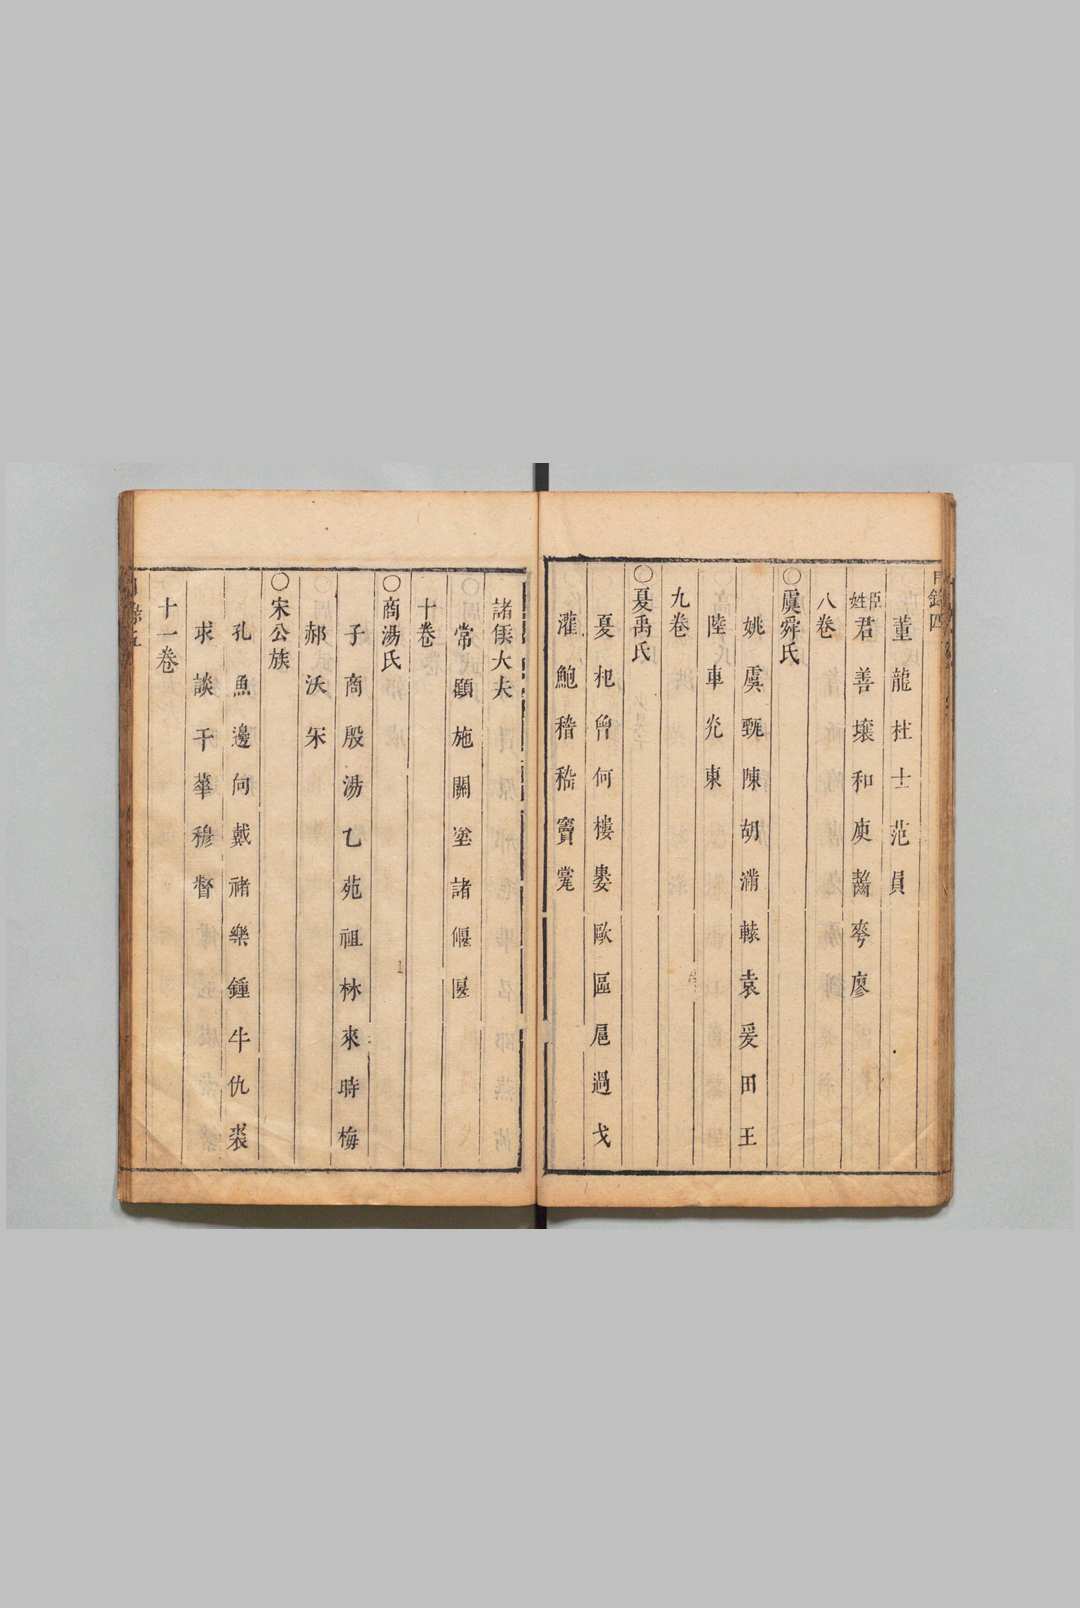 目錄四
董龍杜士范員
臣姓君善壤和庾 麥廖
八卷
○虞舜氏
姚虞甄陳胡滿轅袁爰田王
陸車 東
九卷
○夏禹氏
夏杞曾何樓婁歐區扈過戈
灌鮑稽嵇竇
諸侯大夫
常顧施關塗諸偃匽
十卷
○商湯氏
子商殷湯乙苑祖林來時梅
郝沃宋
○宋公族
孔魚邊何戴褚樂鍾牛仇裘
求談干華穆督
十一卷